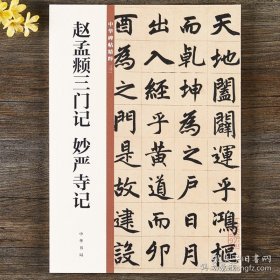 天地闔闢運乎鴻樞
而乾坤為之戶日月
出入經乎黃道而卯
酉為之門是故建設
中华碑帖精粹
赵孟頫三门记 妙严寺记
中華書局